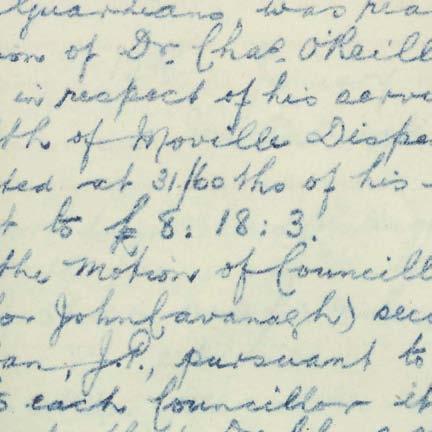 Guardians, was rea
ion of Dr. Chas. O'Reill
in respect of his servi
lth of Moville Dispe
ted at 31/60ths of his
t to £8:18:3.
the motion of Councill
or John Cavanagh) seco
an, J.P., pursuant to
s each Councillor it